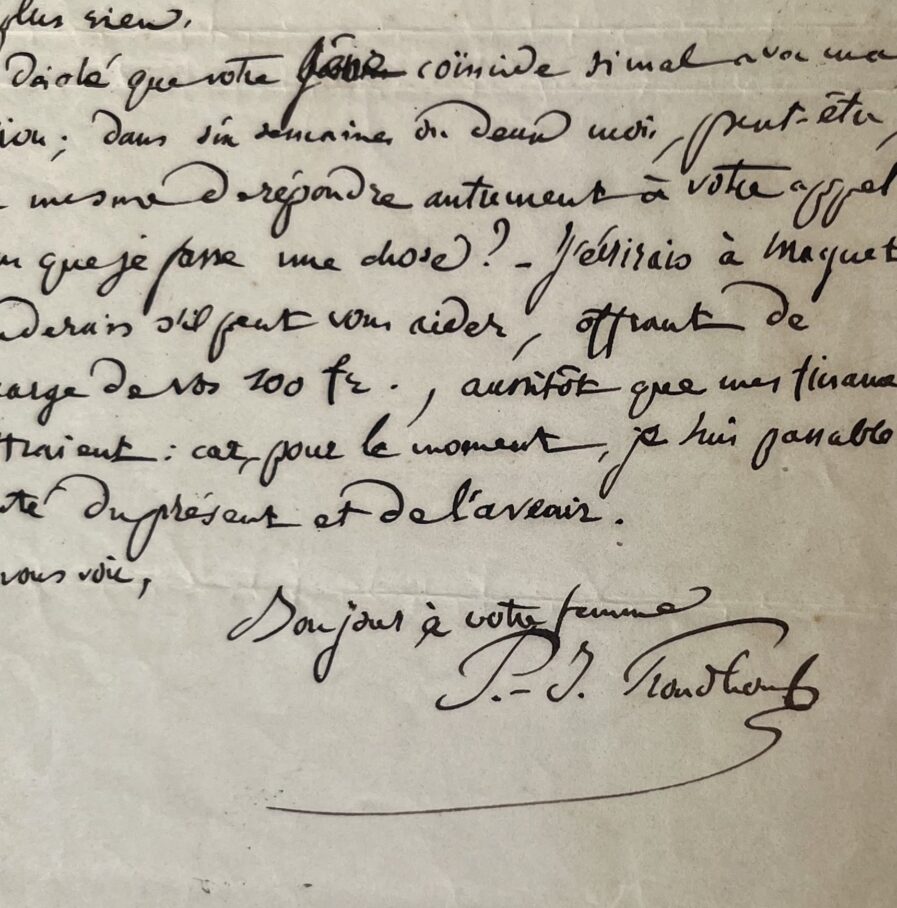 plus rien.
Désolé que votre coïncide si mal avec ma
ion ; dans six semaines ou deux mois, peut-être,
mesme de répondre autrement à votre appel
que je fasse une chose ? - J'écrirais à Maquet
nderais s'il peut vous aider, offrant de
arge de vos 100 fr., aussitôt que mes finance
ttraient : car, pour le moment, je suis passable
nté du présent et de l'avenir.
vous voir,
Bonjour à votre femme
P.-J. Proudhon